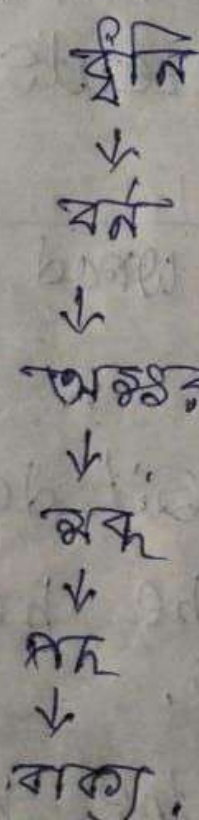 ধ্বনি
↓
বর্ন
↓
অক্ষর
↓
শব্দ
↓
পদ
↓
বাক্য.